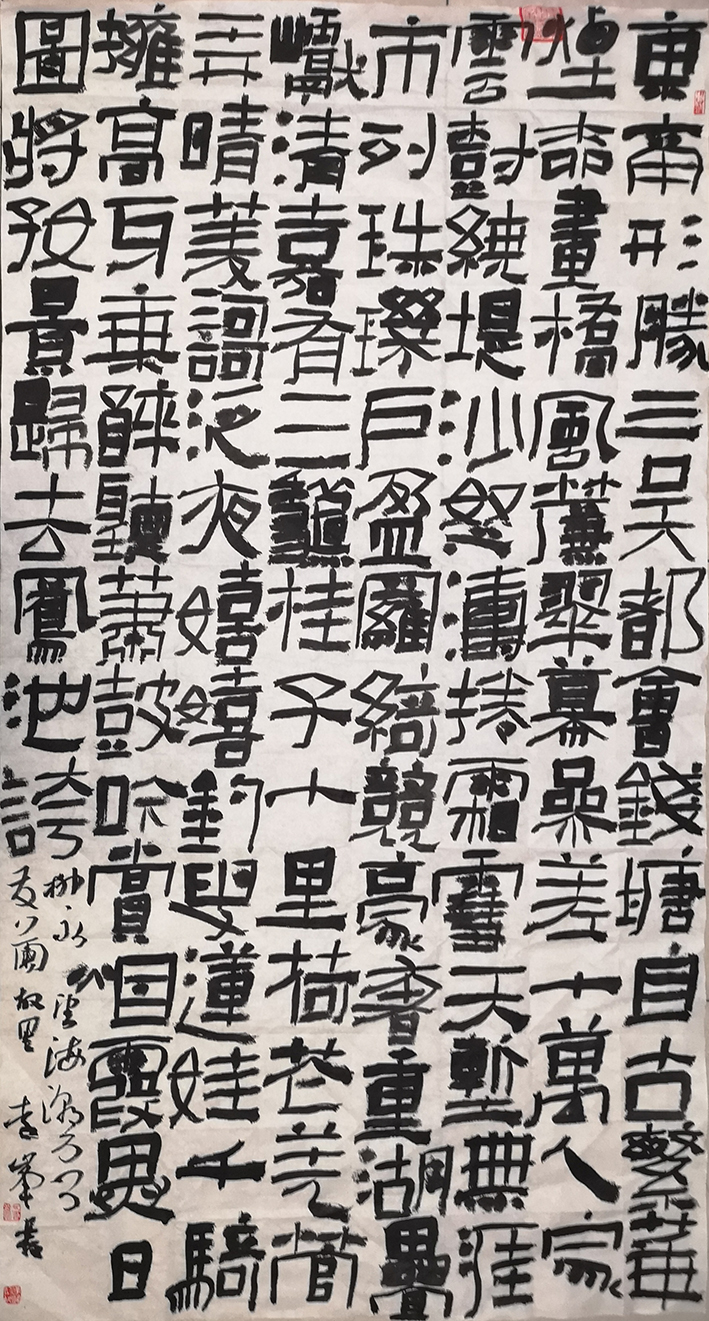 東南形勝三吳都會錢塘自古繁華
煙柳畫橋風簾翠幕參差十萬人家
雲樹繞堤沙怒濤捲霜雪天塹無涯
市列珠璣戶盈羅綺競豪奢重湖疊
巘清嘉有三秋桂子十里荷花羌管
弄晴菱歌泛夜嬉嬉釣叟蓮娃千騎
擁高牙乘醉聽簫鼓吟賞烟霞異日
圖將好景歸去鳳池誇
柳永望海潮
八閩故里